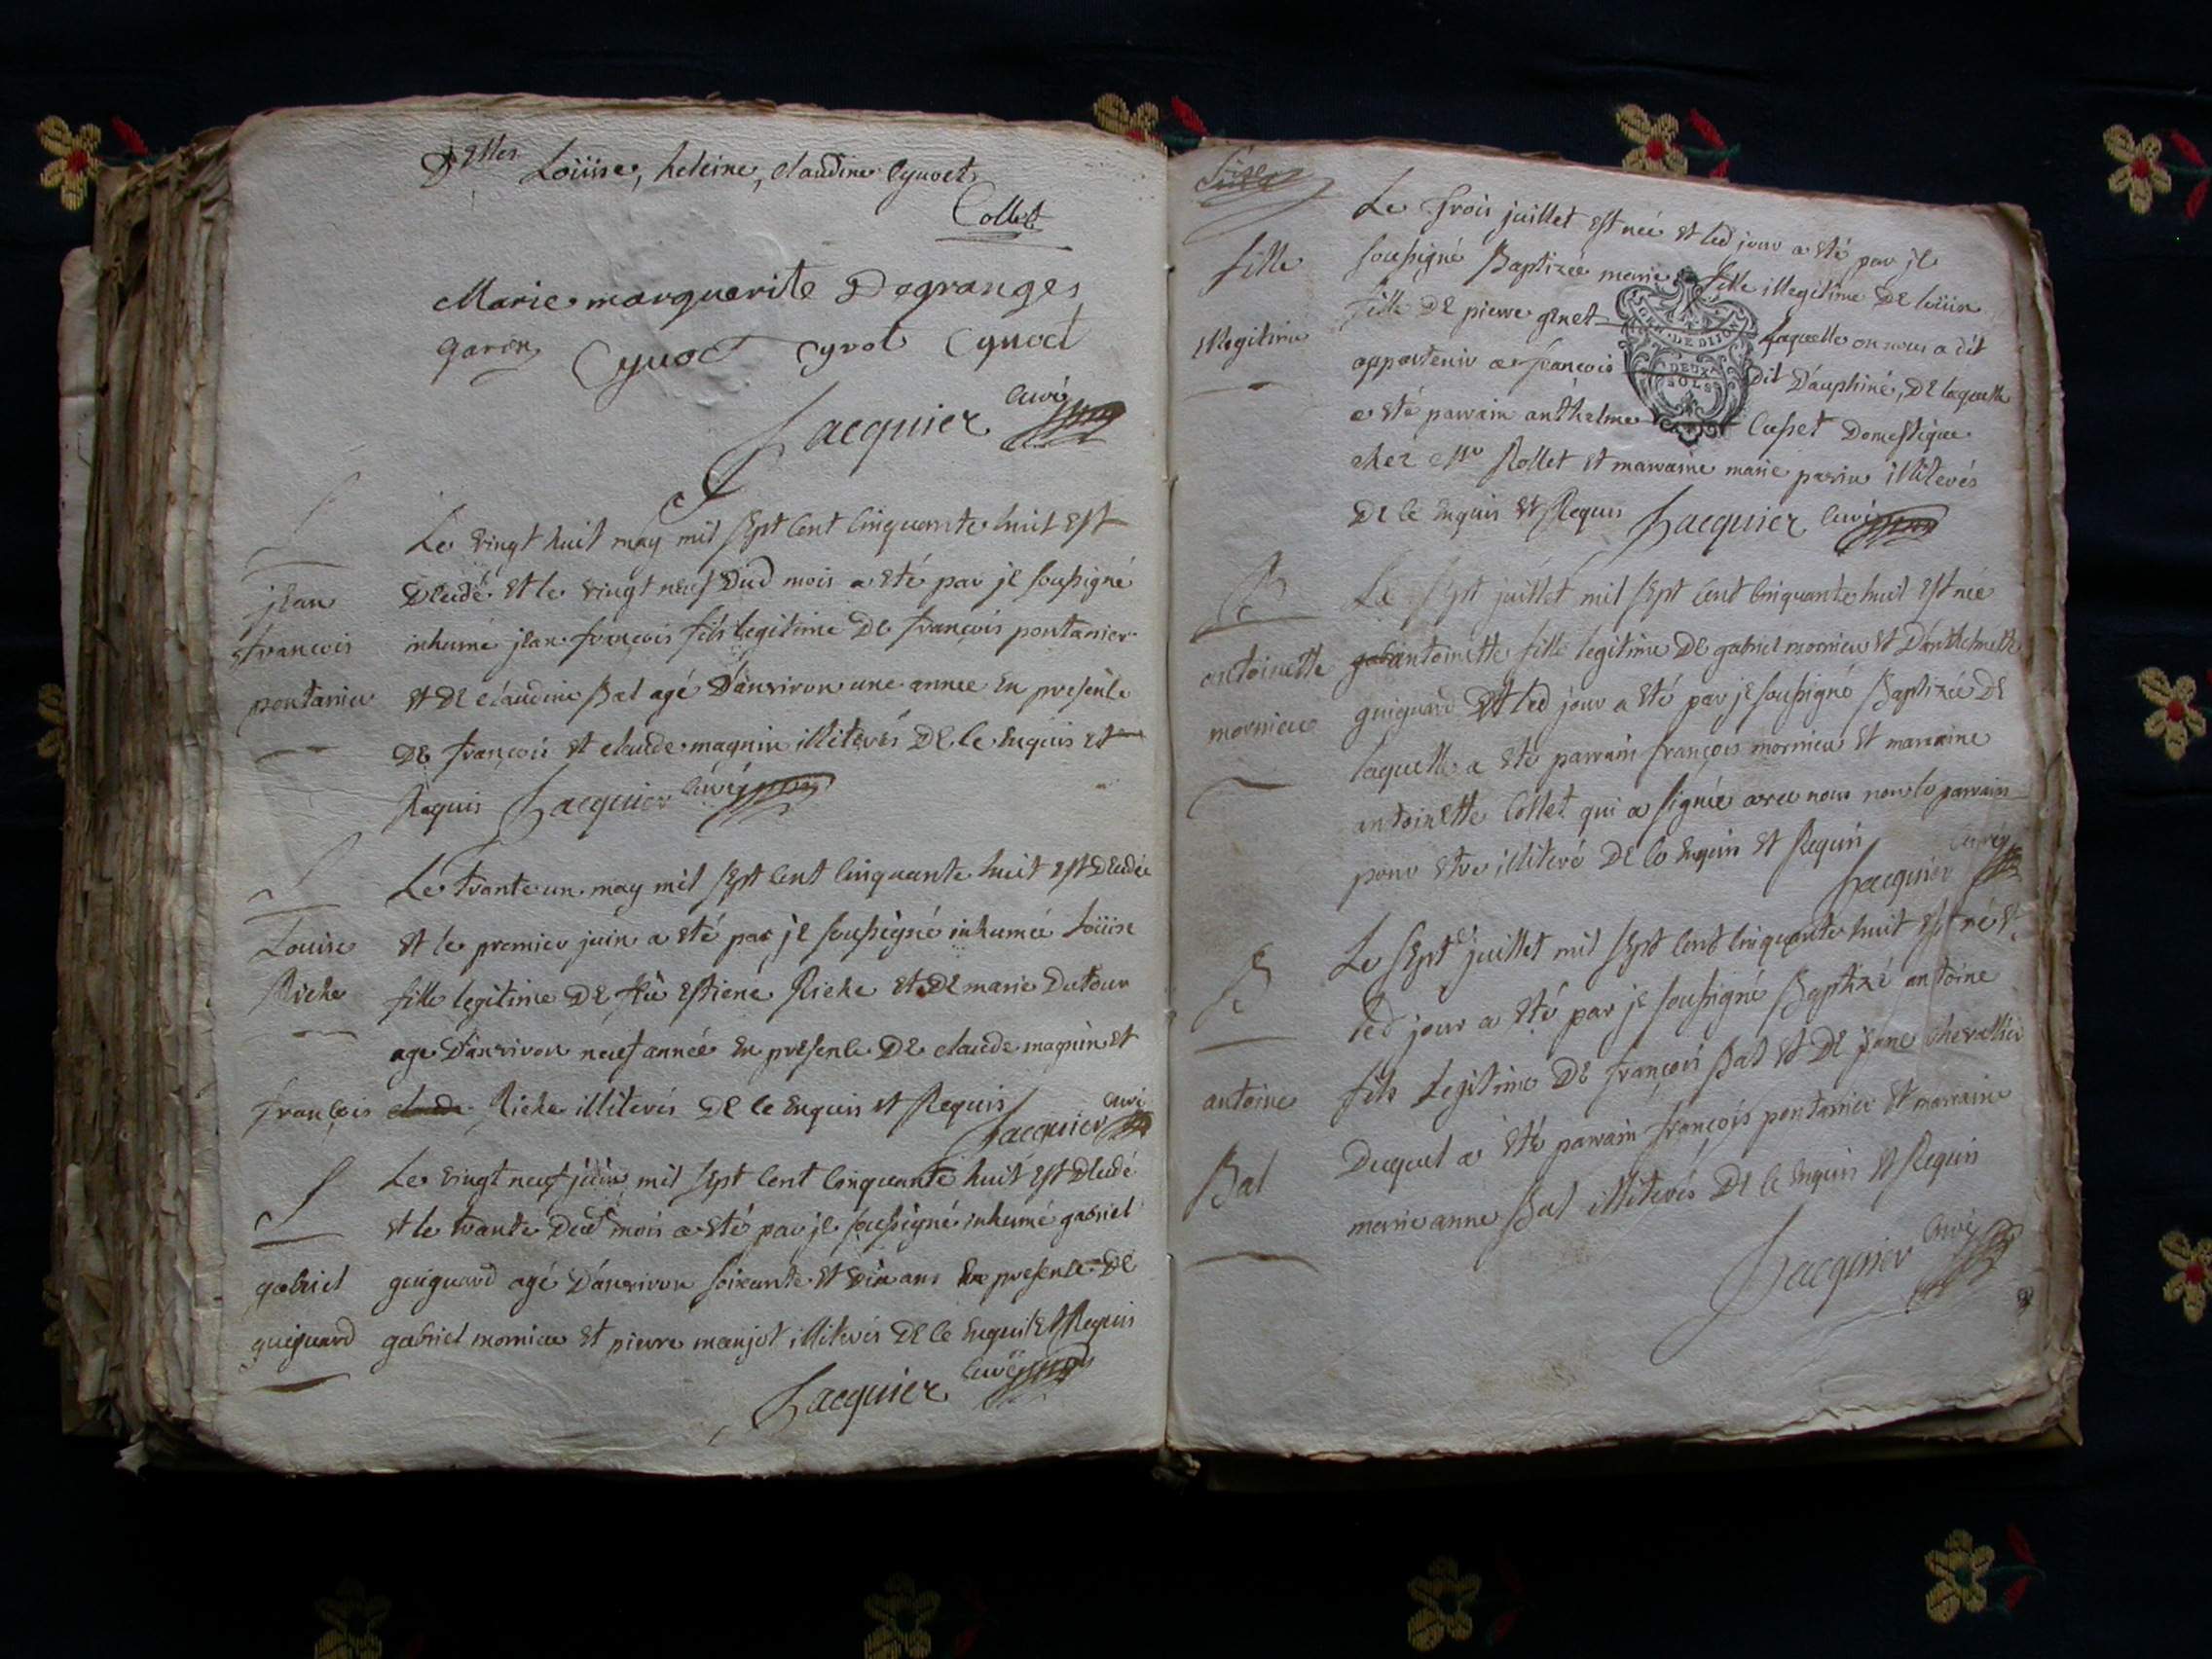 Dlles Loüise, heleine, claudine Cyvoct
Collet
Marie marguerite Degranges
garin Cyvoct Cyvot Cyvoct
Jacquier Curé
Le vingt huit may mil sept cent cinquante huit est
jean
Decedé et le vingt neuf Dud mois a eté par je soussigné
francois
inhumé jean francois fils legitime De francois pontanier
pontanier
et De claudine Bal agé D'anviron une année En presence
De francois et claude magnin illiterés De ce Enquis et
Requis Jacquier Curé
Le Trante un may mil sept cent cinquante huit est Decedée
Louise
et le premier juin a eté par je soussigné inhumée Loüise
Riche
fille legitime De feû Estiene Riche et De marie Dutour
age D'anviron neuf année En presence De claude magnin et
francois claude Riche illiterés De ce Enquis et Requis
Jacquier Curé
Le vingt neuf juin mil sept cent cinquante huit est Decedé
et le trante Dud mois a eté par je soussigné inhumé gabriel
gabriel
guiguard agé D'anviron soixante et dix ans En presence De
guiguard
gabriel mornieu et pierre manjot illiterés De ce Enquis et Requis
Jacquier Curé
Le Trois juillet est née et led jour a eté par je
fille
soussigné Baptizée marie fille illegitime De loüise
illegitime
fille De pierre genet laquelle on nous a dit
appartenir a francois dit Dauphiné, De laquelle
a eté parrain anthelme Cusset Domestique
chez Mr Rollet et marraine marie parin illiterés
De ce Enquis et Requis Jacquier Curé
Le sept juillet mil sept cent cinquante huit est née
antoinette
gab antoinette fille legitime De gabriel mornieu et D'anthelmette
mornieu
guiguard Et led jour a eté par je soussigné Baptizée De
laquelle a eté parrain francois mornieu et marraine
antoinette Collet qui a signée avec nous non le parrain
pour etre illiteré De ce Enquis et Requis
Jacquier Curé
Le sept juillet mil sept cent cinquante huit est né et
led jour a eté par je soussigné Baptizé antoine
antoine
fils Legitime De francois Bal et De jane chevallier
Bal
Duquel a eté parrain francois pontanier et marraine
marie anne Bal illiterés De ce Enquis et Requis
Jacquier Curé
GEN. DE DIJON
DEUX
SOLS